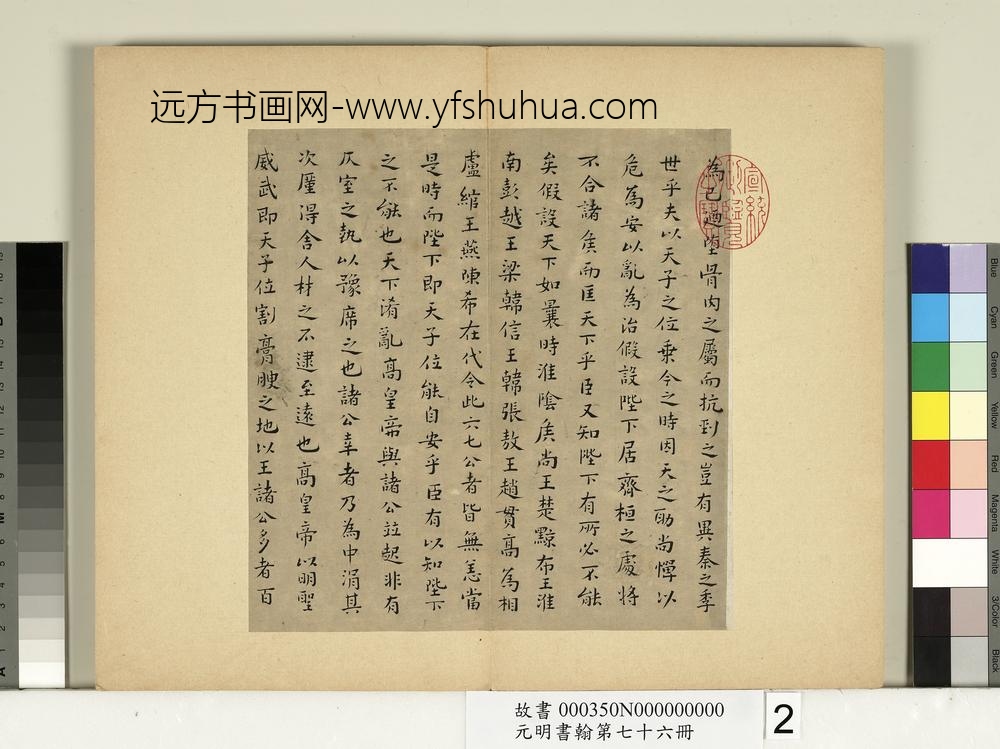 远方书画网-www.yfshuhua.com
為已迺堕骨肉之屬而抗剄之豈有異秦之季
世乎夫以天子之位乗今之時因天之助尚憚以
危為安以亂為治假設陛下居齊桓之處將
不合諸侯而匡天下乎臣又知陛下有所必不能
矣假設天下如曩時淮陰侯尚王楚黥布王淮
南彭越王梁韓信王韓張敖王趙貫高為相
盧綰王燕陳希在代令此六七公者皆無恙當
是時而陛下即天子位能自安乎臣有以知陛下
之不能也天下淆亂高皇帝與諸公竝起非有
仄室之埶以豫席之也諸公幸者乃為中涓其
次廑得舍人材之不逮至遠也高皇帝以明聖
威武即天子位割膏腴之地以王諸公多者百
故書 000350N000000000
元明書翰第七十六冊
2
Blue
Cyan
Green
Yellow
Red
Magenta
White
3/Color
Black